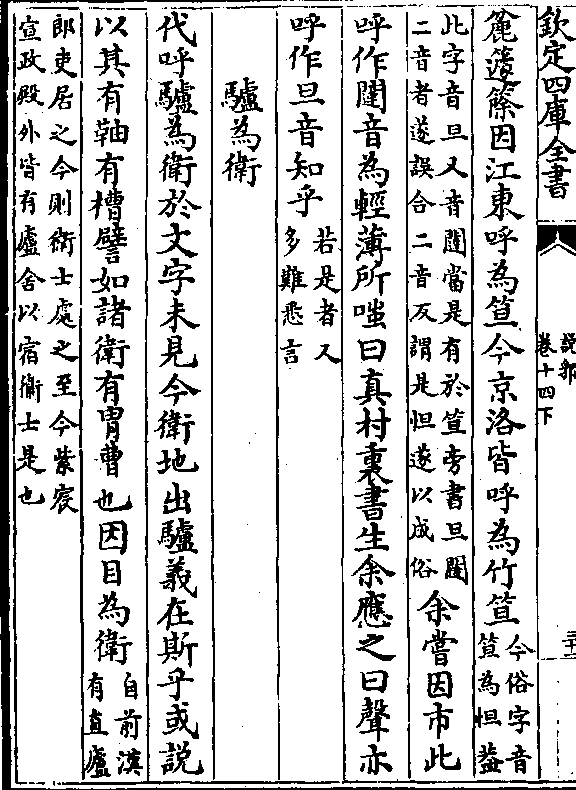 欽定四庫全書
說郛
卷十四下
麄蘧篨因江東呼為笪今京洛皆呼為竹笪
今俗字音
笪為怛葢
此字音旦又音闥當是有於笪旁書旦闥
二音者遂誤合二音反謂是怛遂以成俗
余嘗因市此
呼作闥音為輕薄所嗤曰真村裏書生余應之曰聲亦
呼作旦音知乎
若是者又
多難悉言
驢為衛
代呼驢為衛於文字未見今衛地出驢義在斯乎或説
以其有䩜有槽譬如諸衛有胄曹也因目為衛
自前漢
有直廬
郎吏居之今則衛士處之至今紫宸
宣政殿外皆有廬舍以宿衞士是也